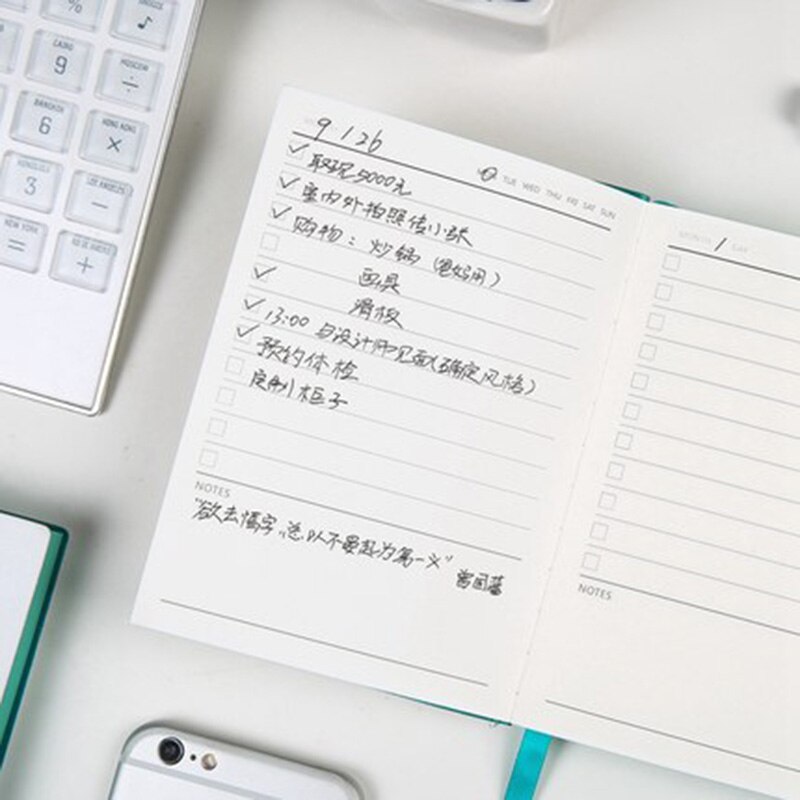 %
CAIRO
9
MOSCOW
÷
BANGKOK
6
HONG KONG
×
HONOLULU
3
LOS ANGELES
−
NEW YORK
=
+
9 / 26
TUE WED THU FRI SAT SUN
取现5000元
室内外拍照传小张
购物：炒锅（老妈用）
画具
滑板
13:00 与设计师见面（确定风格）
预约体检
定制柜子
NOTES
“欲去惰字，总以不晏起为第一义”
曾国藩
MONTH / DAY
NOTES